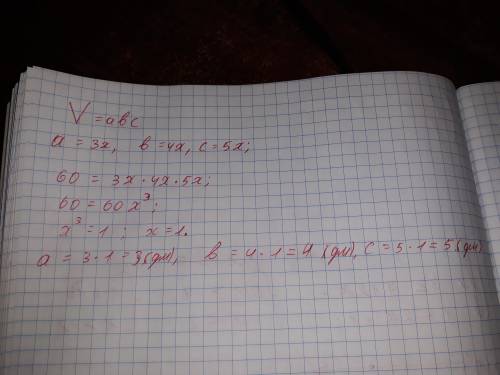 V = abc
a = 3x, в = 4x, c = 5x;
60 = 3x · 4x · 5x;
60 = 60x³;
x³ = 1 ; x = 1.
a = 3 · 1 = 3 (дм), в = 4 · 1 = 4 (дм), c = 5 · 1 = 5 (дм)